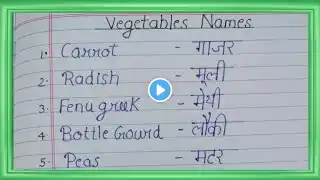 Vegetables Names
1. Carrot - गाजर
2. Radish - मूली
3. Fenugreek - मेथी
4. Bottle Gourd - लौकी
5. Peas - मटर